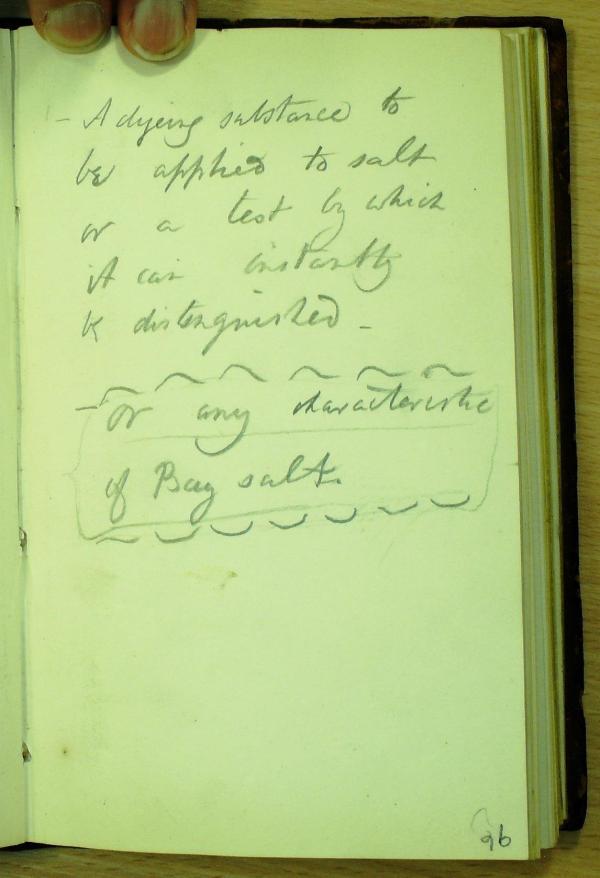 - A dyeing substance to
be applied to salt
or a test by which
it can instantly
be distinguished -
- or any characteristic
of Bay salt.
96